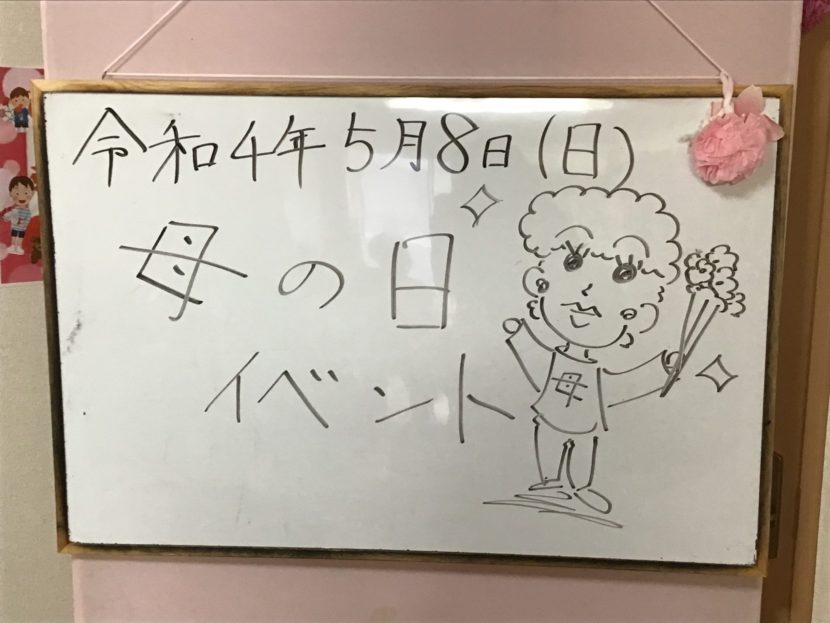 令和4年5月8日(日)
母の日
イベント
母